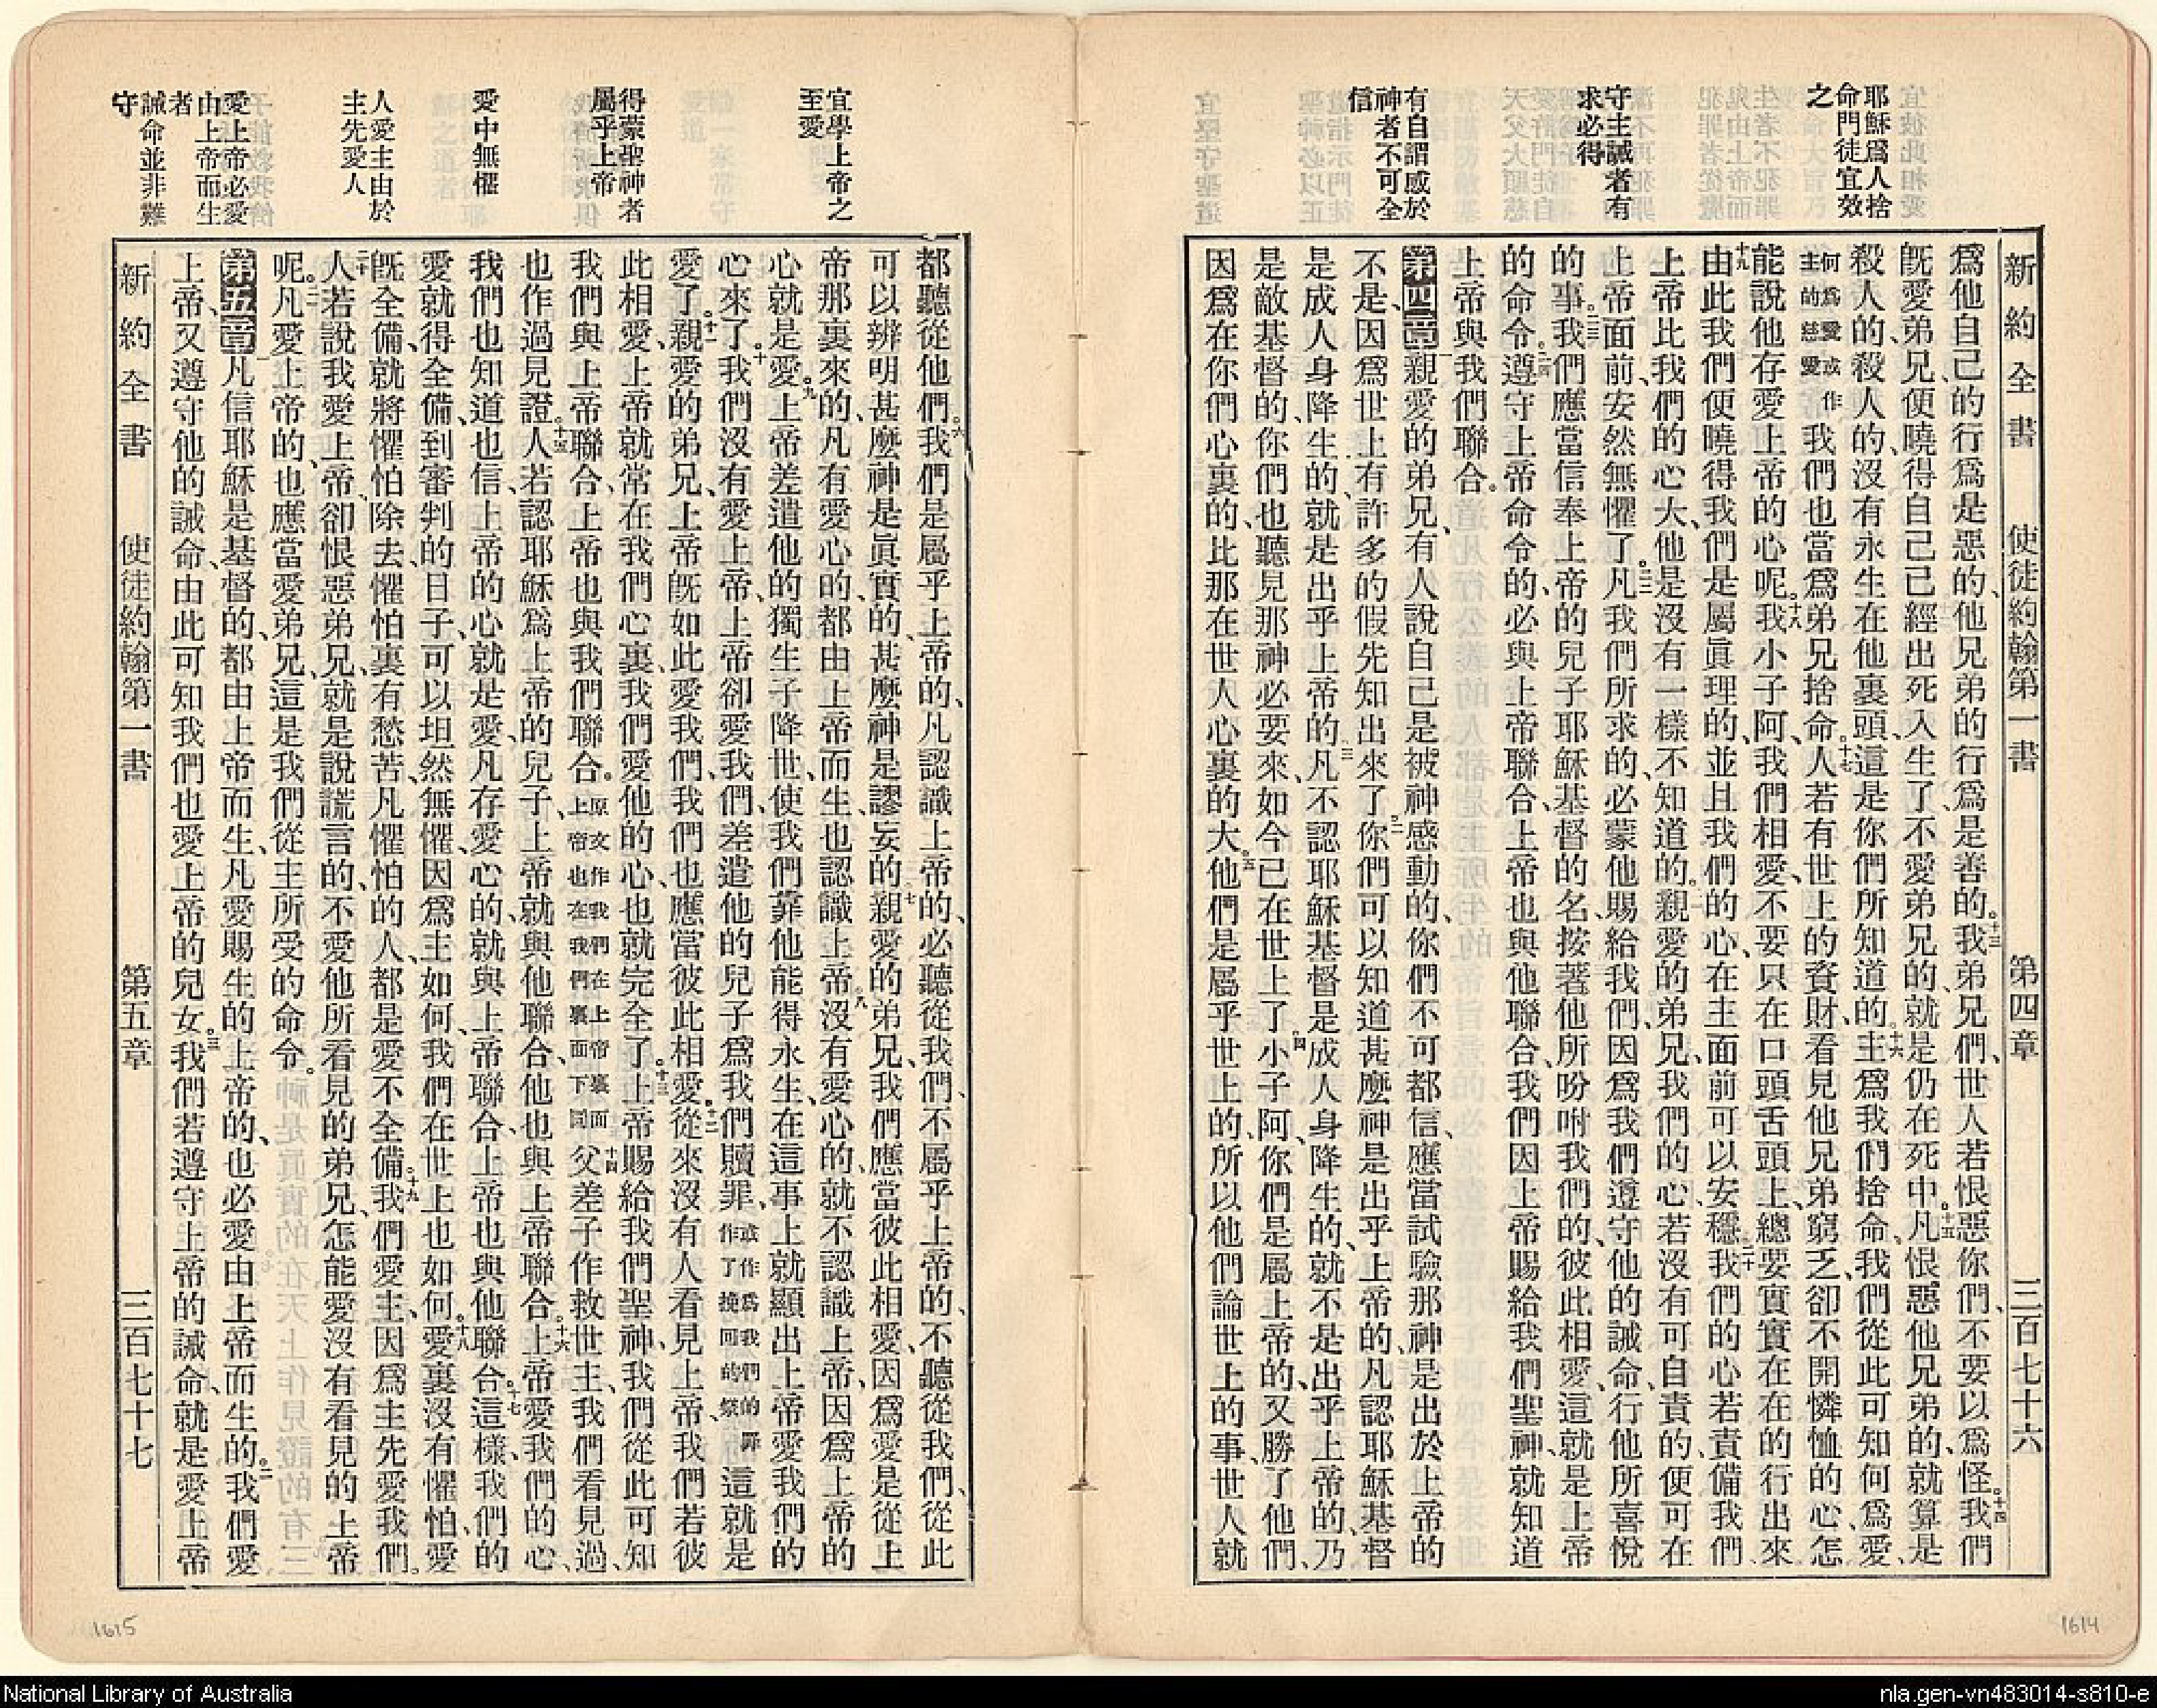 耶穌爲人捨
命門徒宜效
之
守主誡者有
求必得
有自謂感於
神者不可全
信
新約全書 使徒約翰第一書 第四章 三百七十六
爲他自己的行爲是惡的、他兄弟的行爲是善的。十三我弟兄們、世人若恨惡你們、不要以爲怪。十四我們
旣愛弟兄、便曉得自己已經出死入生了、不愛弟兄的、就是仍在死中。十五凡恨惡他兄弟的、就算是
殺人的、殺人的、沒有永生在他裏頭、這是你們所知道的。十六主爲我們捨命、我們從此可知何爲愛、
何爲愛或作主的慈愛我們也當爲弟兄捨命。十七人若有世上的資財、看見他兄弟窮乏、卻不開憐恤的心、怎
能說他存愛上帝的心呢。十八我小子阿、我們相愛、不要只在口頭舌頭上、總要實實在在的行出來
十九由此我們便曉得我們是屬眞理的、並且我們的心、在主面前可以安穩。二十我們的心若責備我們、
上帝比我們的心大、他是沒有一樣不知道的。二一親愛的弟兄、我們的心若沒有可自責的、便可在
上帝面前、安然無懼了。二二凡我們所求的、必蒙他賜給我們、因爲我們遵守他的誡命、行他所喜悅
的事。二三我們應當信奉上帝的兒子耶穌基督的名、按著他所吩咐我們的、彼此相愛、這就是上帝
的命令。二四遵守上帝命令的、必與上帝聯合、上帝也與他聯合、我們因上帝賜給我們聖神、就知道
上帝與我們聯合。
第四章一親愛的弟兄、有人說自己是被神感動的、你們不可都信、應當試驗那神是出於上帝的
不是、因爲世上有許多的假先知出來了。二你們可以知道甚麼神是出乎上帝的、凡認耶穌基督
是成人身降生的、就是出乎上帝的。三凡不認耶穌基督是成人身降生的、就不是出乎上帝的、乃
是敵基督的、你們也聽見那神必要來、如今已在世上了。四小子阿、你們是屬上帝的、又勝了他們、
因爲在你們心裏的、比那在世人心裏的大。五他們是屬乎世上的、所以他們論世上的事、世人就
1614
宜學上帝之
至愛
得蒙聖神者
屬乎上帝
愛中無懼
人愛主由於
主先愛人
愛上帝必愛
由上帝而生
者
誡命並非難
守
都聽從他們。六我們是屬乎上帝的、凡認識上帝的、必聽從我們、不屬乎上帝的、不聽從我們、從此
可以辨明甚麼神是眞實的、甚麼神是謬妄的。七親愛的弟兄、我們應當彼此相愛、因爲愛是從上
帝那裏來的、凡有愛心的、都由上帝而生、也認識上帝。八沒有愛心的、就不認識上帝、因爲上帝的
心就是愛。九上帝差遣他的獨生子降世、使我們靠他能得永生、在這事上就顯出上帝愛我們的
心來了。十我們沒有愛上帝、上帝卻愛我們、差遣他的兒子爲我們贖罪、或作爲我們的罪作了挽回的祭這就是
愛了。十一親愛的弟兄、上帝旣如此愛我們、我們也應當彼此相愛。十二從來沒有人看見上帝、我們若彼
此相愛、上帝就常在我們心裏、我們愛他的心、也就完全了。十三上帝賜給我們聖神、我們從此可知
我們與上帝聯合、上帝也與我們聯合。原文作我們在上帝裏面上帝也在我們裏面下同十四父差子作救世主、我們看見過、
也作過見證。十五人若認耶穌爲上帝的兒子、上帝就與他聯合、他也與上帝聯合。十六上帝愛我們的心、
我們也知道也信、上帝的心就是愛、凡存愛心的、就與上帝聯合、上帝也與他聯合。十七這樣、我們的
愛就得全備、到審判的日子、可以坦然無懼、因爲主如何、我們在世上也如何。十八愛裏沒有懼怕、愛
旣全備、就將懼怕除去、懼怕裏有愁苦、凡懼怕的人、都是愛不全備。十九我們愛主、因爲主先愛我們。
二十人若說我愛上帝、卻恨惡弟兄、就是說謊言的、不愛他所看見的弟兄、怎能愛沒有看見的上帝
呢。二一凡愛上帝的、也應當愛弟兄、這是我們從主所受的命令。
第五章一凡信耶穌是基督的、都由上帝而生、凡愛賜生的上帝的、也必愛由上帝而生的。二我們愛
上帝、又遵守他的誡命、由此可知我們也愛上帝的兒女。三我們若遵守上帝的誡命、就是愛上帝
新約全書 使徒約翰第一書 第五章 三百七十七
1615
National Library of Australia
nla.gen-vn483014-s810-e